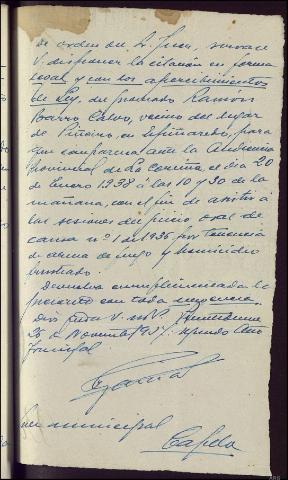 De orden del Sr. Juez, sirvase
V. disponer la citación en forma
legal y con los apercibimientos
de Ley, del procesado Ramón
Barro Calvo, vecino del lugar
de Piñeiro, en Espiñaredo, para
que comparezca ante la Audiencia
Provincial de La Coruña, el dia 20
de Enero 1938 á las 10 y 30 de la
mañana, con el fin de asistir á
las sesiones del juicio oral de
causa nº 1 de 1936 por tenencia
de arma de fuego y homicidio
frustrado.
Devuelva cumplimentada la
presente con toda urgencia.
Dios guíe a V. m. a. Puentedeume
26 de Noviembre 1937. Segundo Año
Triunfal

Juez municipal
Capela